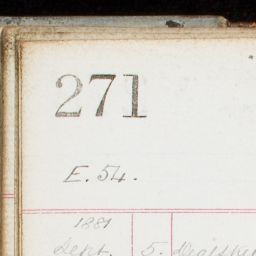 271
E. 54.
1881
Sept. 5.